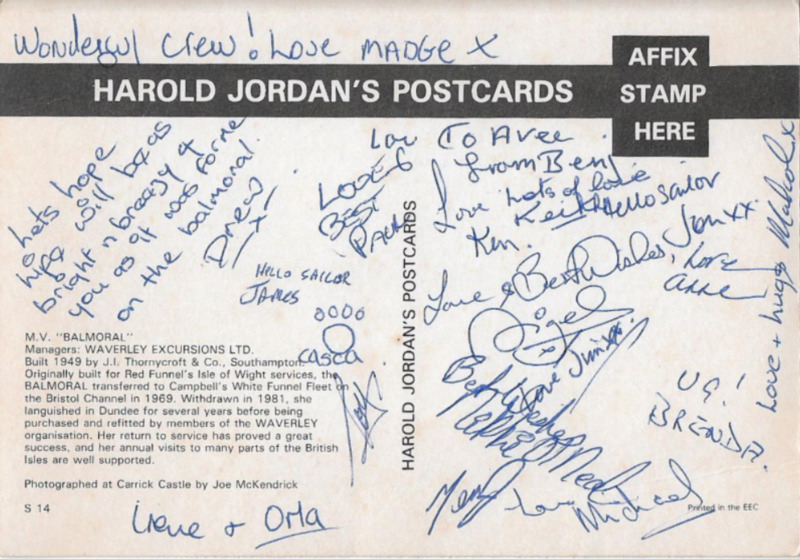 Wonderful Crew! Love MADGE X
AFFIX
STAMP
HERE
HAROLD JORDAN'S POSTCARDS
lets hope
will be as
bright n breezy
you as it was for me
on the balmoral.
Drew
X
HELLO SAILOR
JAMES
0000
LOVE &
BEST
To
from Ben
Love
Ken.
Lots of love
Keith
Hello sailor
Jon xx
Love & Best Wishes,
Nigel
Love
Anne
Love Jim xx
Best Wishes
Love + hugs Malcolm x
UG!
BRENDA.
Love
Michael
HAROLD JORDAN'S POSTCARDS
M.V. "BALMORAL"
Managers: WAVERLEY EXCURSIONS LTD.
Built 1949 by J.I. Thornycroft & Co., Southampton.
Originally built for Red Funnel's Isle of Wight services, the
BALMORAL transferred to Campbell's White Funnel Fleet on
the Bristol Channel in 1969. Withdrawn in 1981, she
languished in Dundee for several years before being
purchased and refitted by members of the WAVERLEY
organisation. Her return to service has proved a great
success, and her annual visits to many parts of the British
Isles are well supported.
Photographed at Carrick Castle by Joe McKendrick
S 14
Irene + Orla
Printed in the EEC